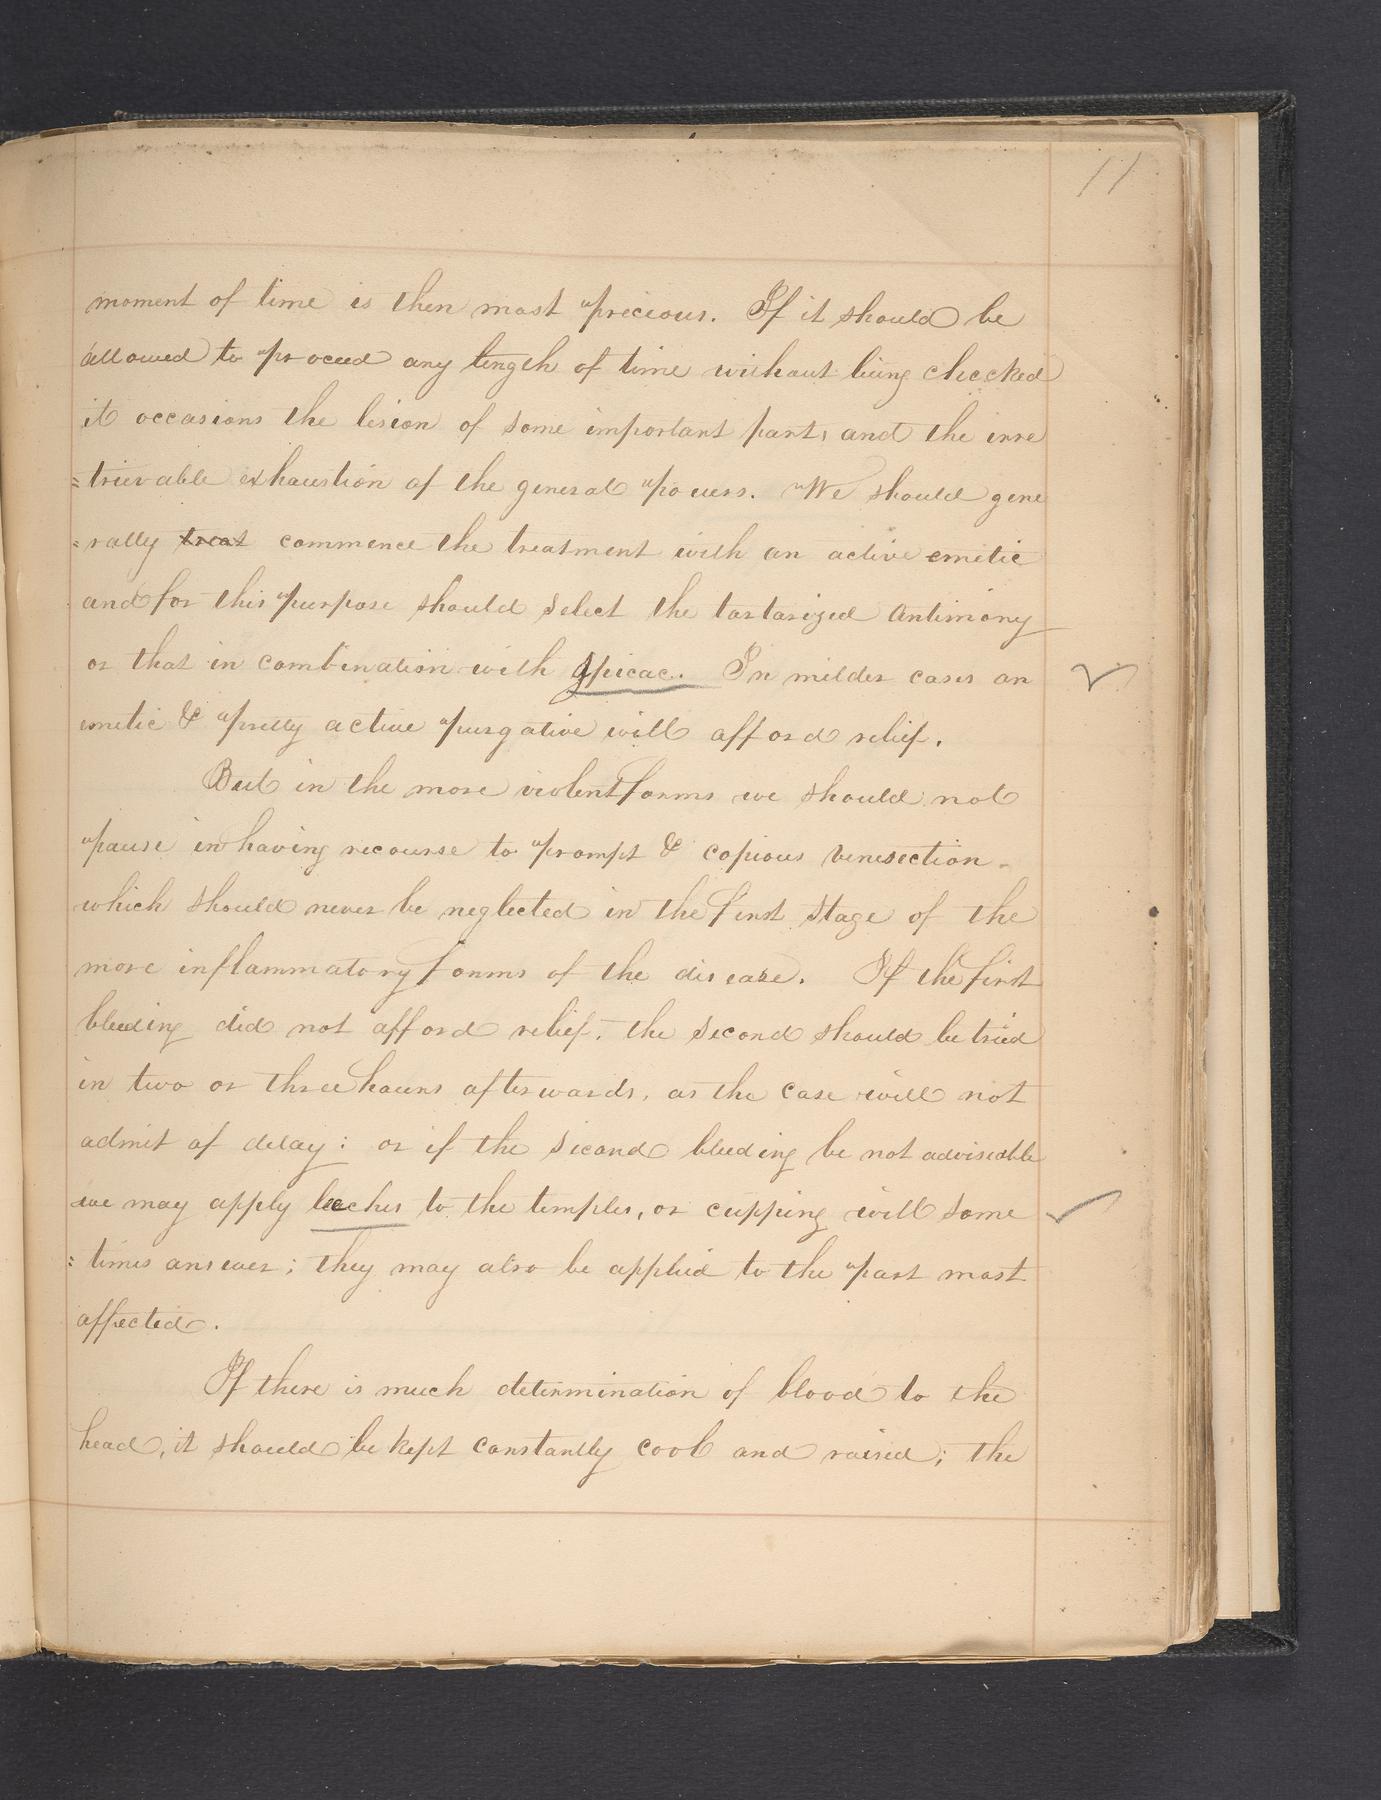 11
moment of time is then most precious. If it should be
allowed to proceed any length of time without being checked
it occasions the lesion of some important part, and the irre
=trievable exhaustion of the general powers. We should gene
=rally treat commence the treatment with an active emetic
and for this purpose should select the tartarized Antimony
or that in combination with Ipicac. In milder cases an
emetic & pretty active purgative will afford relief.
But in the more violent forms we should not
pause in having recourse to prompt & copious venesection -
which should never be neglected in the first stage of the
more inflammatory forms of the disease. If the first
bleeding did not afford relief, the second should be tried
in two or three hours afterwards, as the case will not
admit of delay: or if the second bleeding be not adviseable
we may apply leeches to the temples, or cupping will some
=times answer; they may also be applied to the part most
affected.
If there is much determination of blood to the
head, it should be kept constantly cool and raised; the